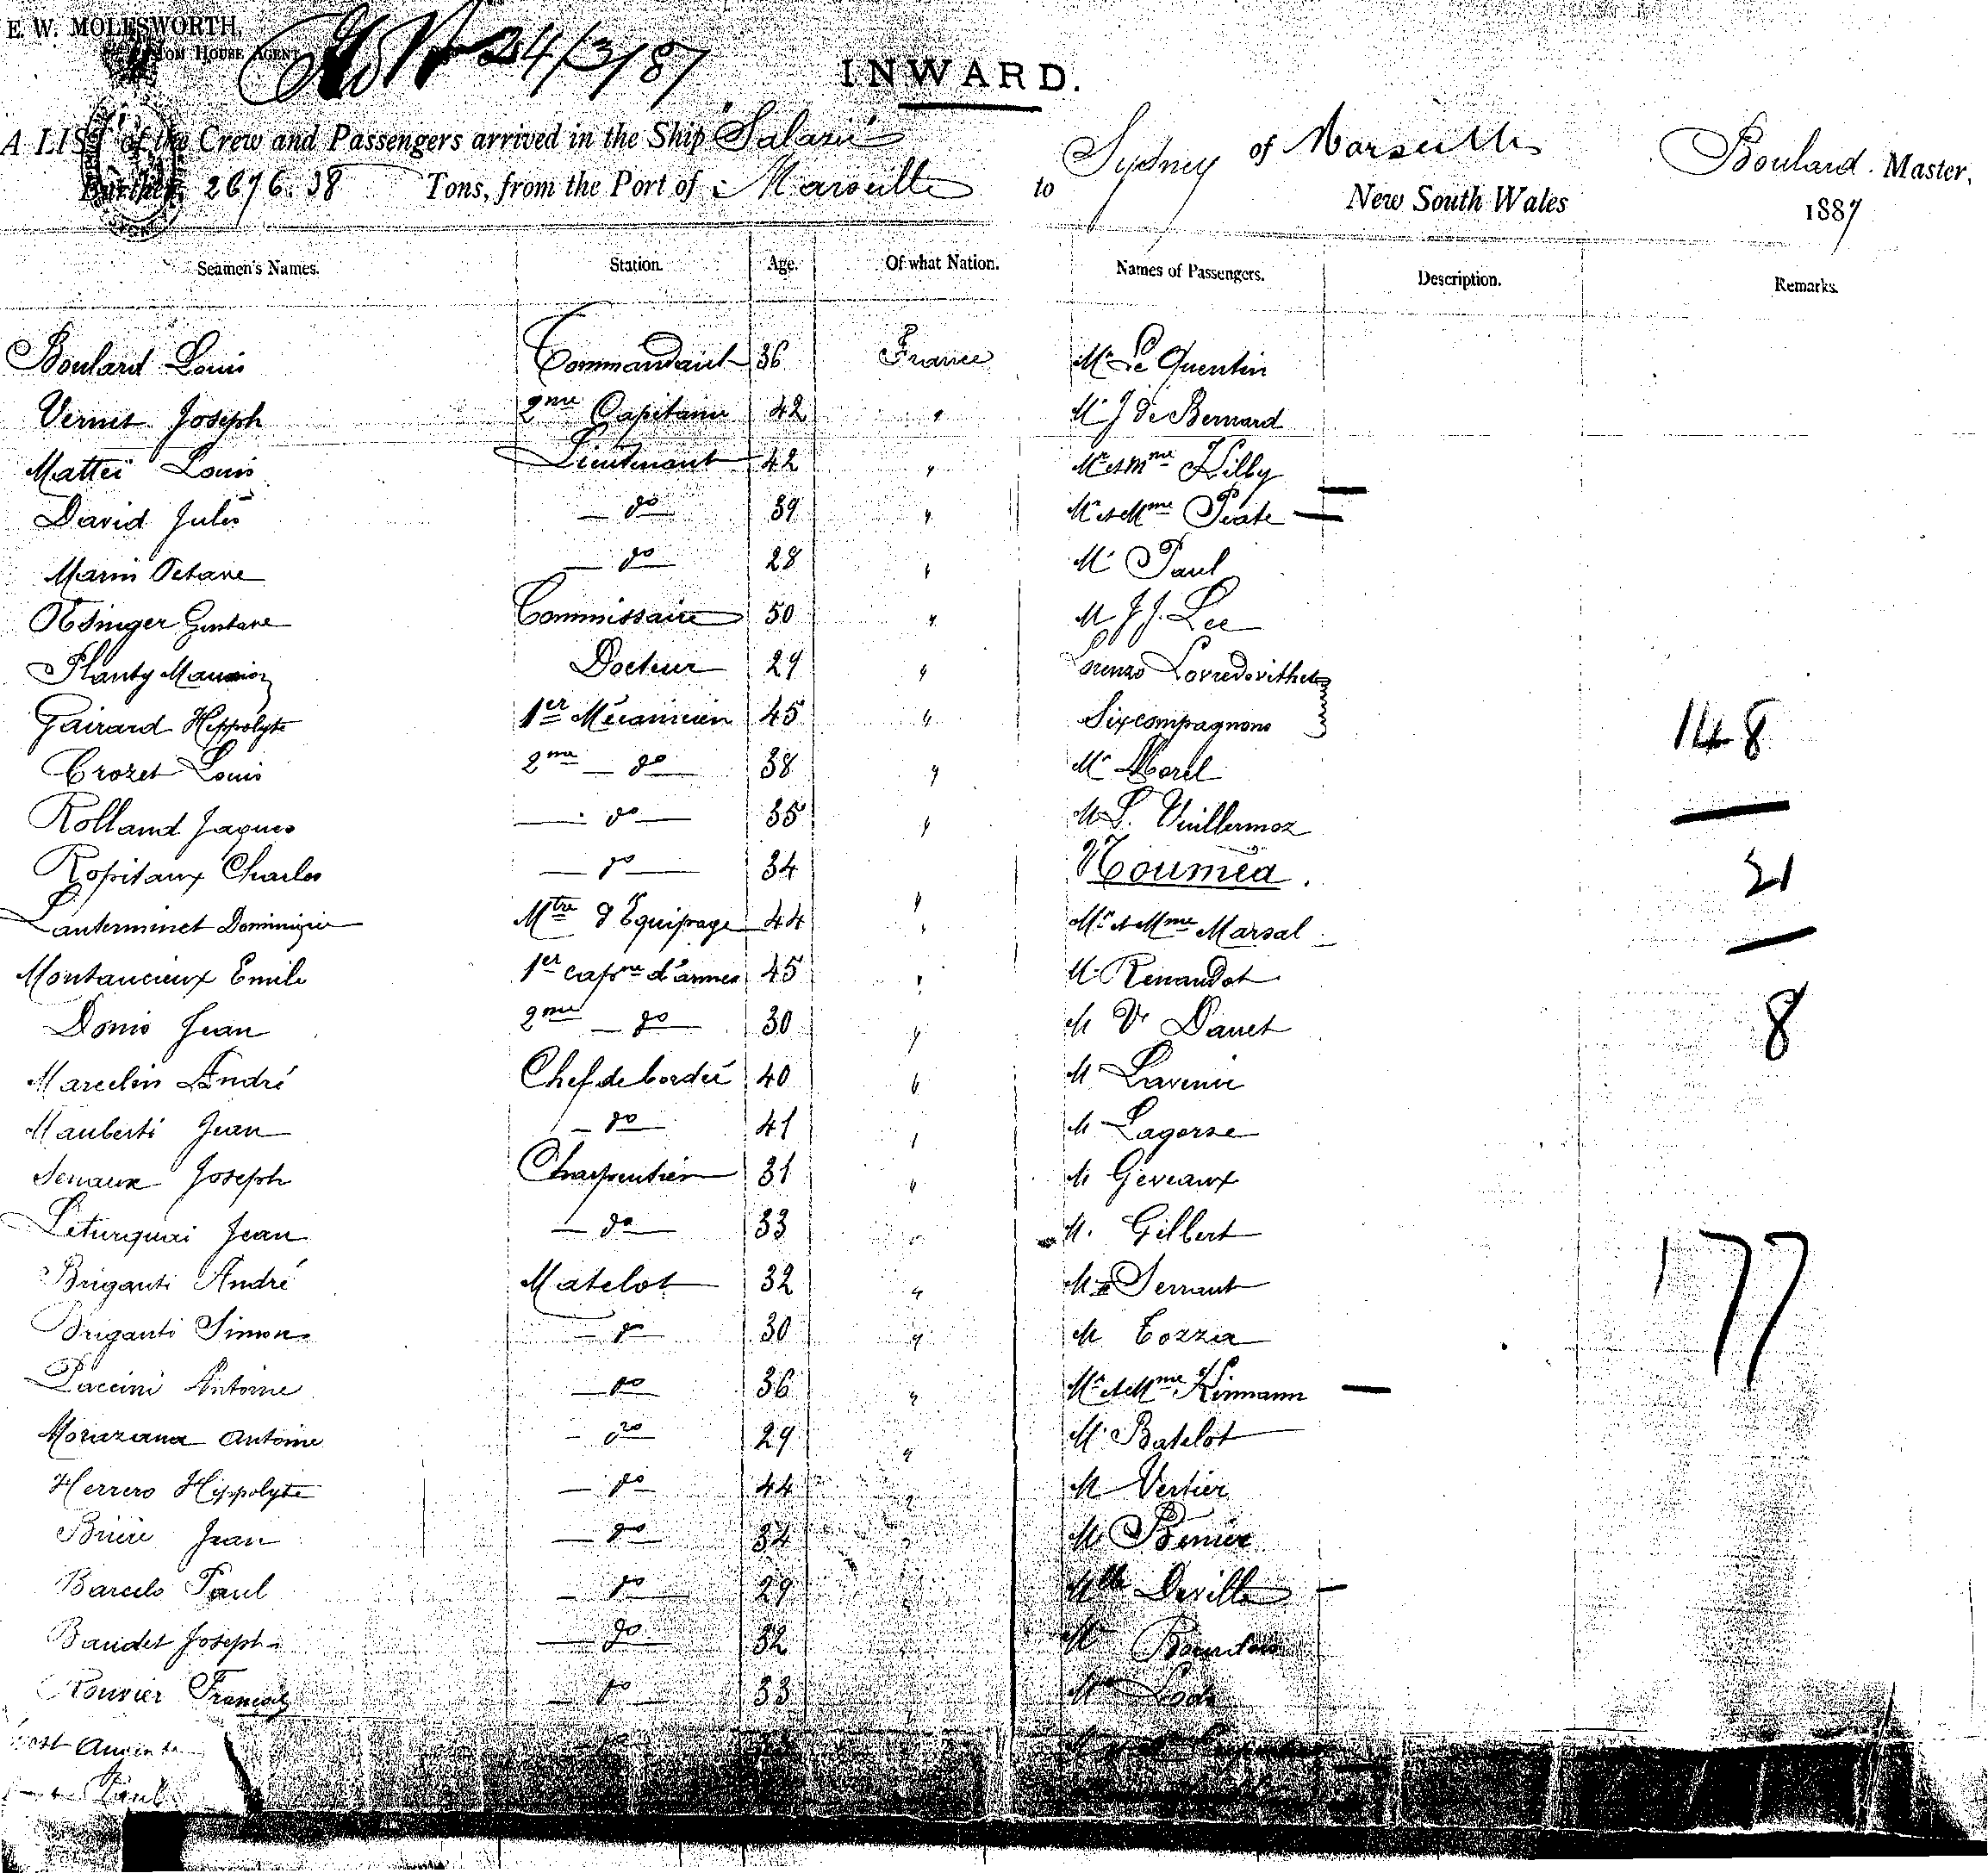 E. W. MOLESWORTH,
CUSTOM HOUSE AGENT
24/3/87
INWARD.
A LIST of the Crew and Passengers arrived in the Ship "Salazie" of Marseilles Boulard Master,
Burthen, 2676.38 Tons, from the Port of Marseille to Sydney New South Wales 1887
Seamen's Names. Station. Age. Of what Nation. Names of Passengers. Description. Remarks.
Boulard Louis Commandant 36 France Mr Le Quentin
Vernet Joseph 2me Capitaine 42 " Mr J de Bernard
Mattei Louis Lieutenant 42 " Mr et Mme Hilby
David Jules do 39 " Mr et Mme Peate
Marin Octave do 28 " Mr Paul
Gustave Commissaire 50 " M J J. Lee
Planty Docteur 29 " Lorenzo
Gairard Hippolyte 1er Mécanicien 45 " Six compagnons 148
Crozet Louis 2me do 38 " Mr Morel
Rolland Jaques do 35 " M L. Vuillermoz
Ropitaux Charles do 34 " Nouméa. 21
Lanterminet Mtre d'Equipage 44 " Mr et Mme Marsal
Montaucieux Emile 1er capne d'armes 45 " Mr Renaudot
Donio Jean 2me do 30 " M Ve Danet 8
Marcelin André Chef de bordée 40 " M Lavenir
Mauberti Jean do 41 " M Lagorse
Senaux Joseph Charpentier 31 " M Geveaux
Leturquai Jean do 33 " M. Gilbert 177
Briganti André Matelot 32 " M Serraut
Briganti Simon do 30 " M Cozza
Paccini Antoine do 36 " Mr et Mme Kinmann
Morazana Antoine do 29 " M. Batelot
Herrero Hippolyte do 44 " M Vertier
Jean do 34 " M Benier
Barcelo Paul do 29 " Mlle Deville
Baudet Joseph do 32 M
Rouvier François do 33
Paul